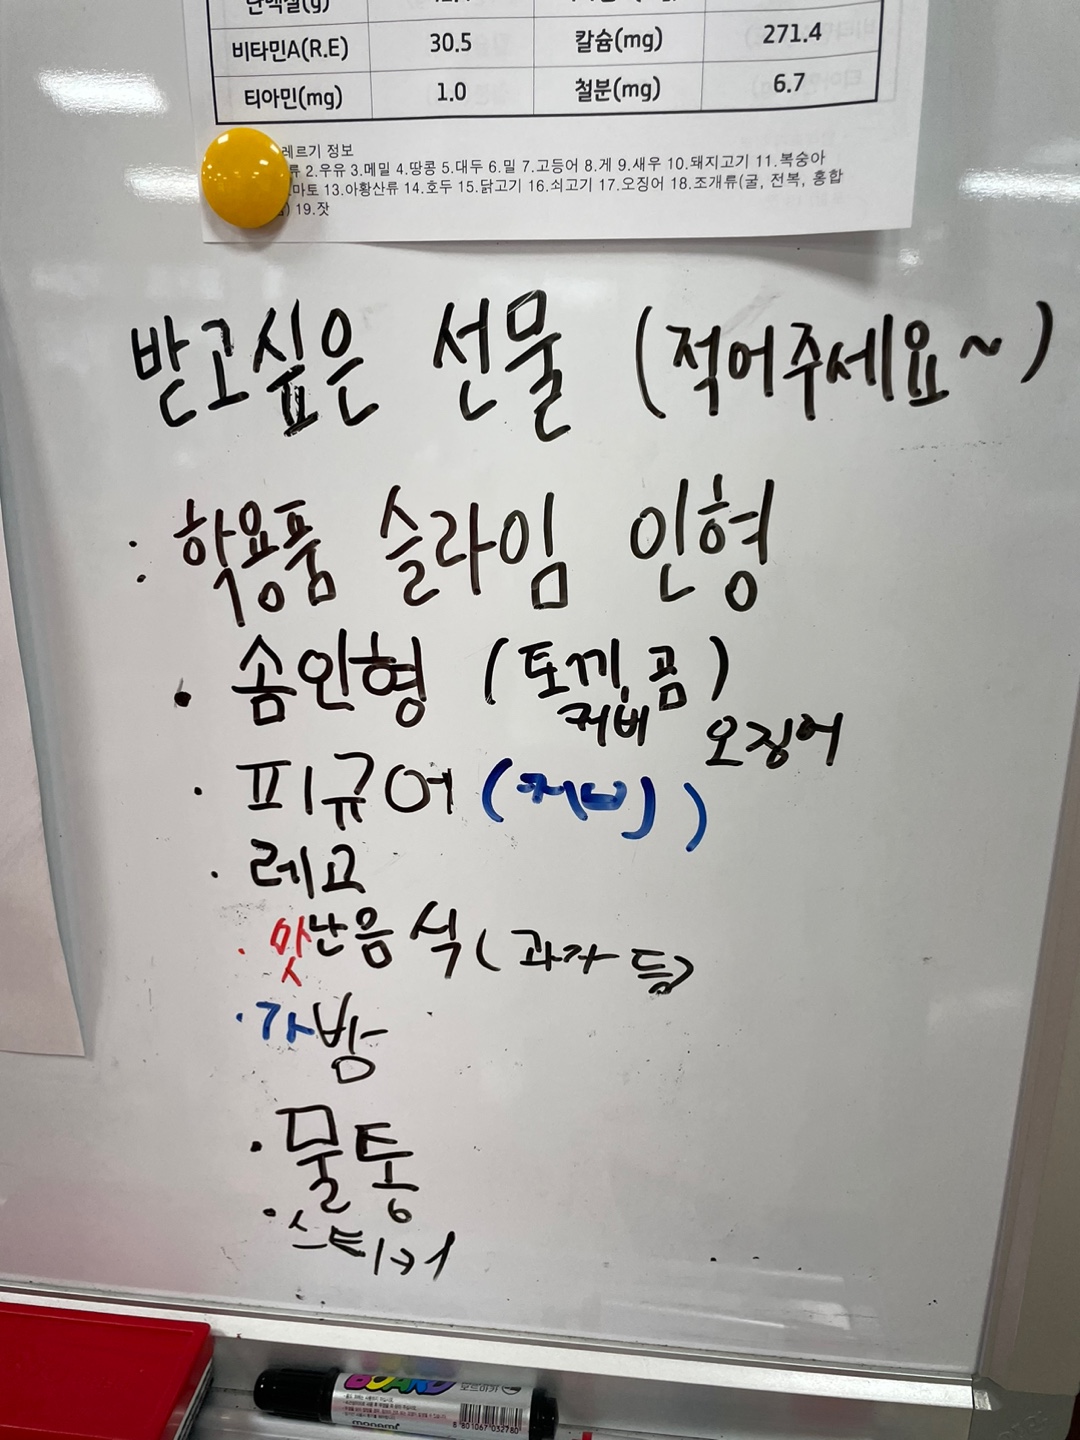 단백질(g)
비타민A(R.E) 30.5 칼슘(mg) 271.4
티아민(mg) 1.0 철분(mg) 6.7
레르기 정보
류 2.우유 3.메밀 4.땅콩 5.대두 6.밀 7.고등어 8.게 9.새우 10.돼지고기 11.복숭아
마토 13.아황산류 14.호두 15.닭고기 16.쇠고기 17.오징어 18.조개류(굴, 전복, 홍합
) 19.잣
받고싶은 선물 (적어주세요~)
: 학용품 슬라임 인형
· 솜인형 (토끼, 곰)
커비 오징어
· 피규어 (커비)
· 레고
· 맛난음식 (과자 등)
· 가방
· 물통
· 스티커
BOARD 보드마카
monami
8 801067 032780